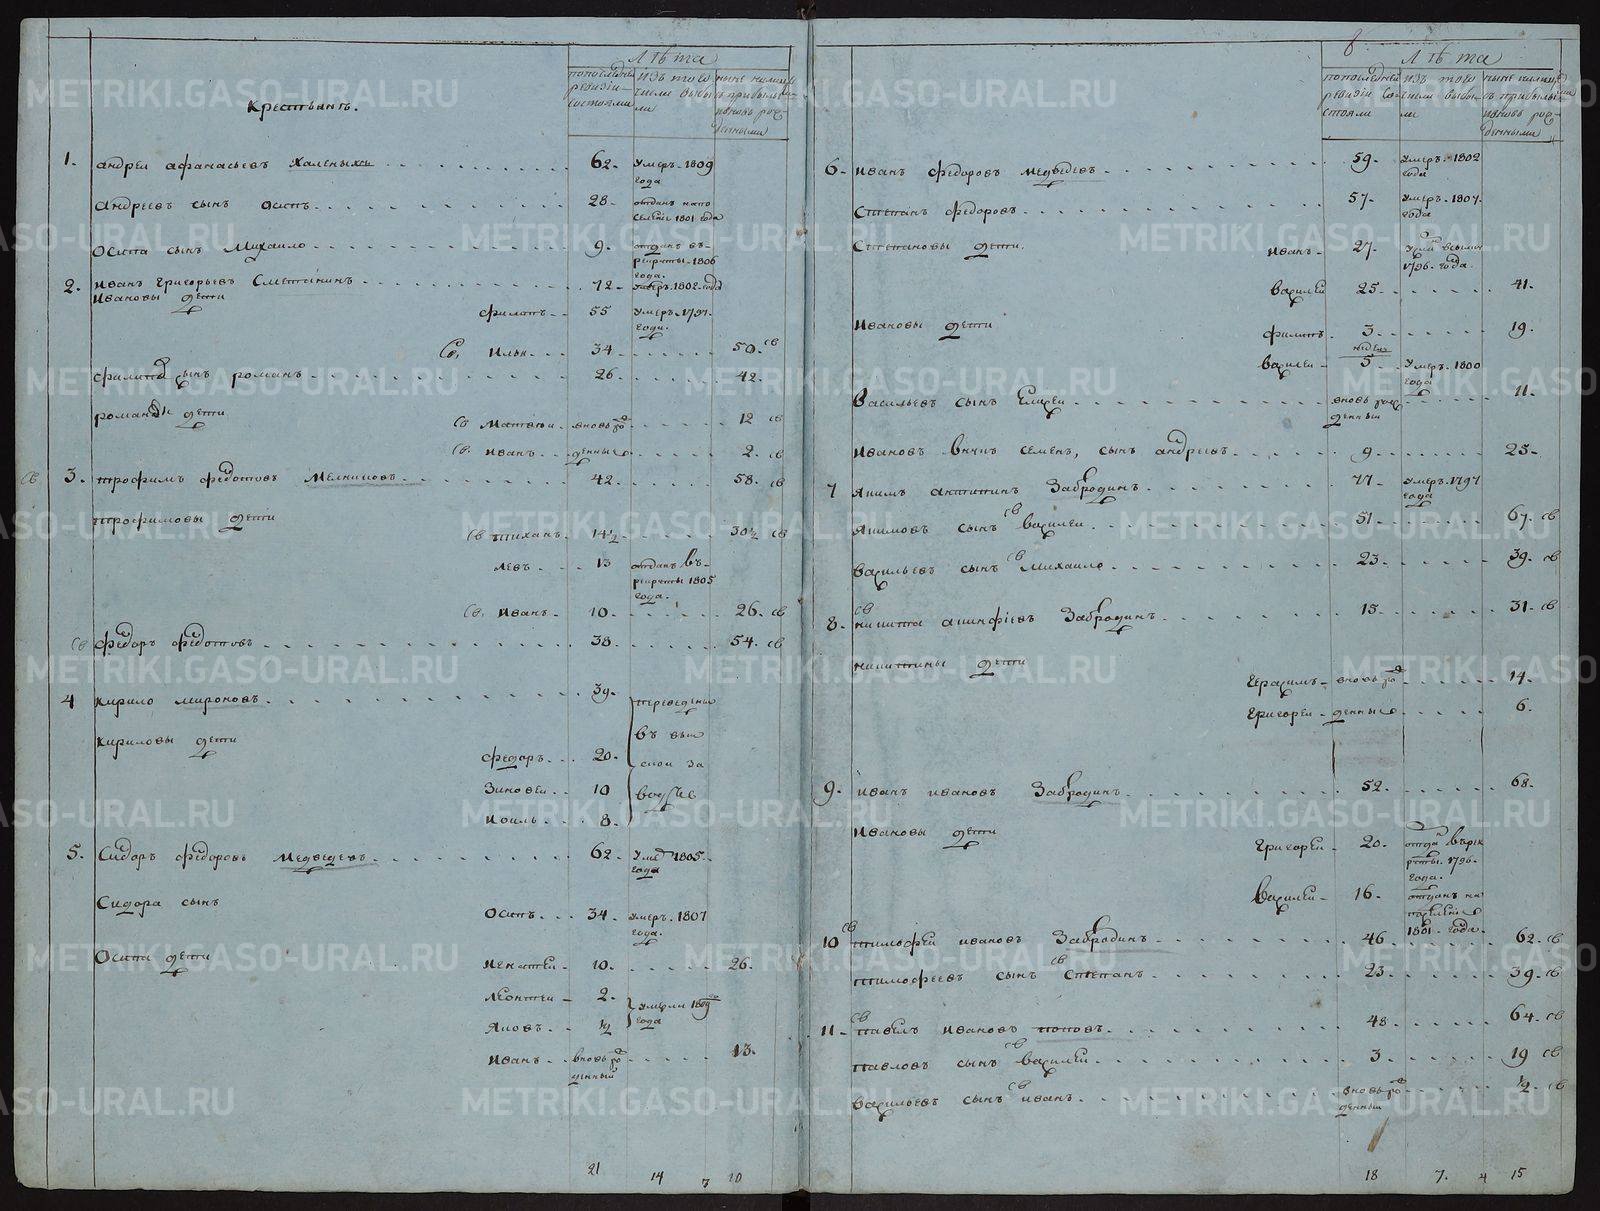 Лѣта
Крестьянъ.
по последней ревизіи состояли
изъ того числа выбыли
ныне налицо съ прибылыми и вновь рожденными
1. Андреи Афанасьевъ Халеныхъ 62. умеръ 1809 года
Андреевъ сынъ Осипъ 28. отданъ на поселение 1801 года
Осипа сынъ Михаило 9. отданъ в рекруты 1806 года.
2. Иванъ Григорьевъ Сметанинъ 72. умеръ 1802 года
Ивановы дети
Филипъ 55 умеръ 1797 годи.
Св. Илья 34 50. св
Филипа сынъ Романъ 26 42.
Романа дети
Св Матвеи вновь ро 12 св
Св. Иванъ жденные 2. св
св 3. Трофимъ Федотовъ Мелниковъ 42. 58. св
Трофимовы дети
Св Тиханъ 14½ 30½ св
Левъ 13 отданъ въ рекруты 1805 года.
Св. Иванъ 10. 26. св
Св Федоръ Федотовъ 38 54. св
4 Кирило Мироновъ 39. переведены
Кириловы дети
въ выи
Федоръ 20. скои за
Зиновеи 10 водъ
Иоиль 8.
5. Сидоръ Федоровъ Медведевъ 62. умеръ 1805 года
Сидора сынъ
Осипъ 34. умеръ 1807 года.
Осипа дети
Игнатеи 10. 26.
Леонтеи 2. умерли 1809 года
Яковъ ½
Иванъ вновь рожденный 13.
21 14 7 10
8
Лѣта
по последней ревизіи состояли
изъ того числа выбыли
ныне налицо съ прибылыми и вновь рожденными
6. Иванъ Федоровъ Медведевъ 59. умеръ 1802 года
Степанъ Федоровъ 57. умеръ 1807. года
Степановы дети.
Иванъ 27. 1796. года.
Василеи 25 41.
Ивановы дети
Филипъ 3 недель 19.
Василеи 5 умеръ 1800 года
Васильевъ сынъ Елисеи вновь рожденный 11.
Ивановъ внукъ Семенъ, сынъ Андреевъ 9 25.
7 Якимъ Антипинъ Забродинъ 77. умеръ 1797 года
Якимовъ сынъ св Василеи 51 67. св
Васильевъ сынъ св Михаило 23 39. св
8. св Никита Анкифіевъ Забродинъ 15 31. св
Никитины дети
Герасимъ вновь ро 14.
Григореи жденные 6.
9. Иванъ Ивановъ Забродинъ 52. 68.
Ивановы дети
Григореи 20. отда въ рекруты. 1796. года.
Василеи 16. отданъ на поселение 1801. года.
10 св Тимофеи Ивановъ Забродинъ 46 62. св
Тимофеевъ сынъ св Степанъ 23. 39. св
11. св Павелъ Ивановъ Поповъ 48 64. св
Павловъ сынъ св Василеи 3 19 св
Васильевъ сынъ св Иванъ вновь рожденный ½ св
18 7. 4 15
METRIKI.GASO-URAL.RU